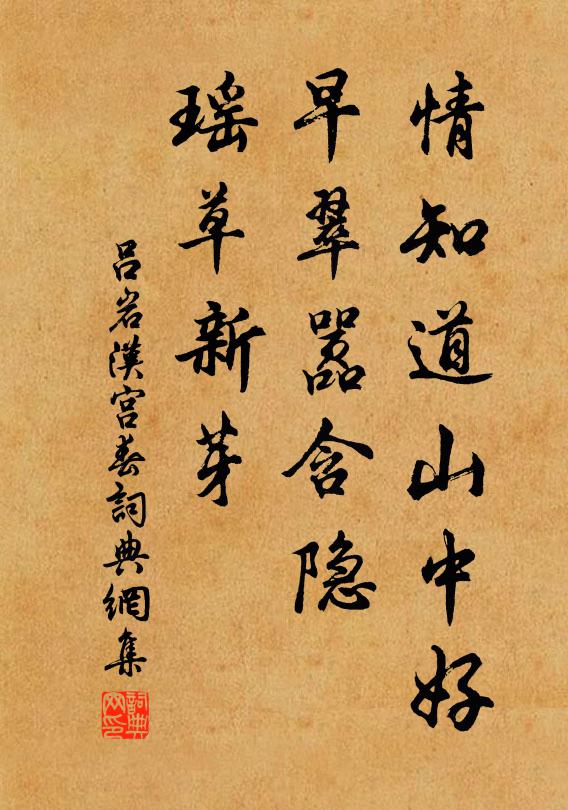 情知道山中好
早翠嚣含隐
瑶草新芽
吕岩漢宫春詞典網集
詞典
网印